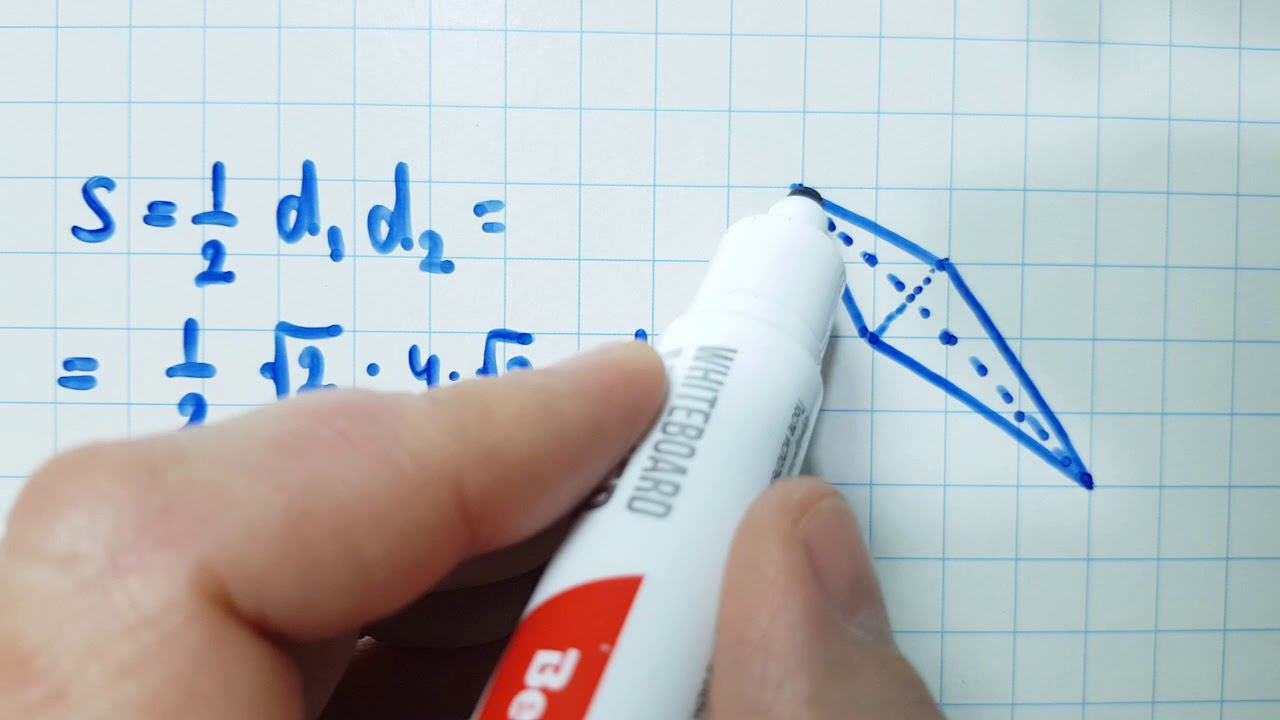 S = 1/2 d₁ d₂ =
= 1/2 √2 · 4 · √
WHITEBOARD
Be